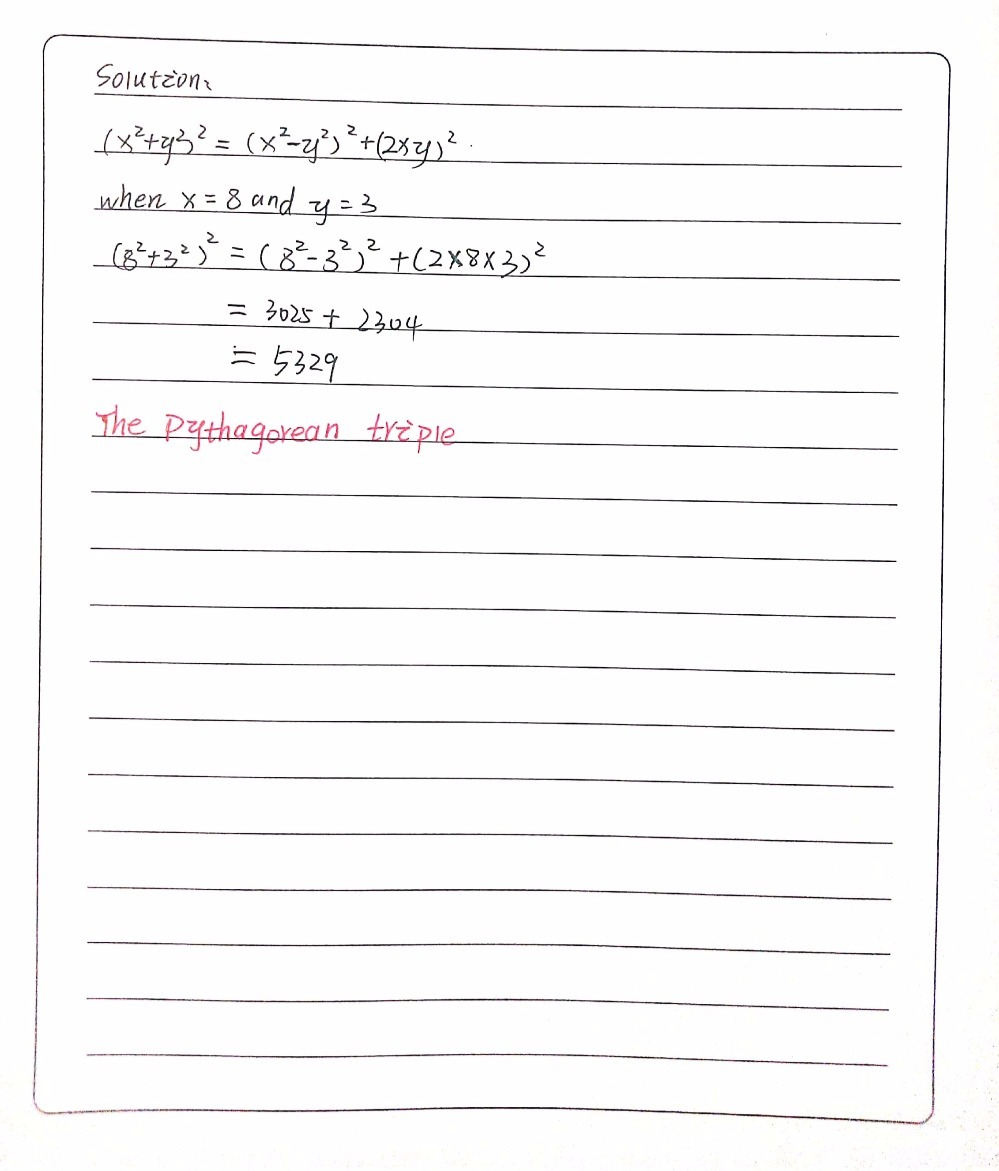 Solution:
(x²+y²)² = (x²-y²)²+(2xy)².
when x = 8 and y = 3
(8²+3²)² = (8²-3²)² +(2×8×3)²
= 3025 + 2304
= 5329
The Pythagorean triple